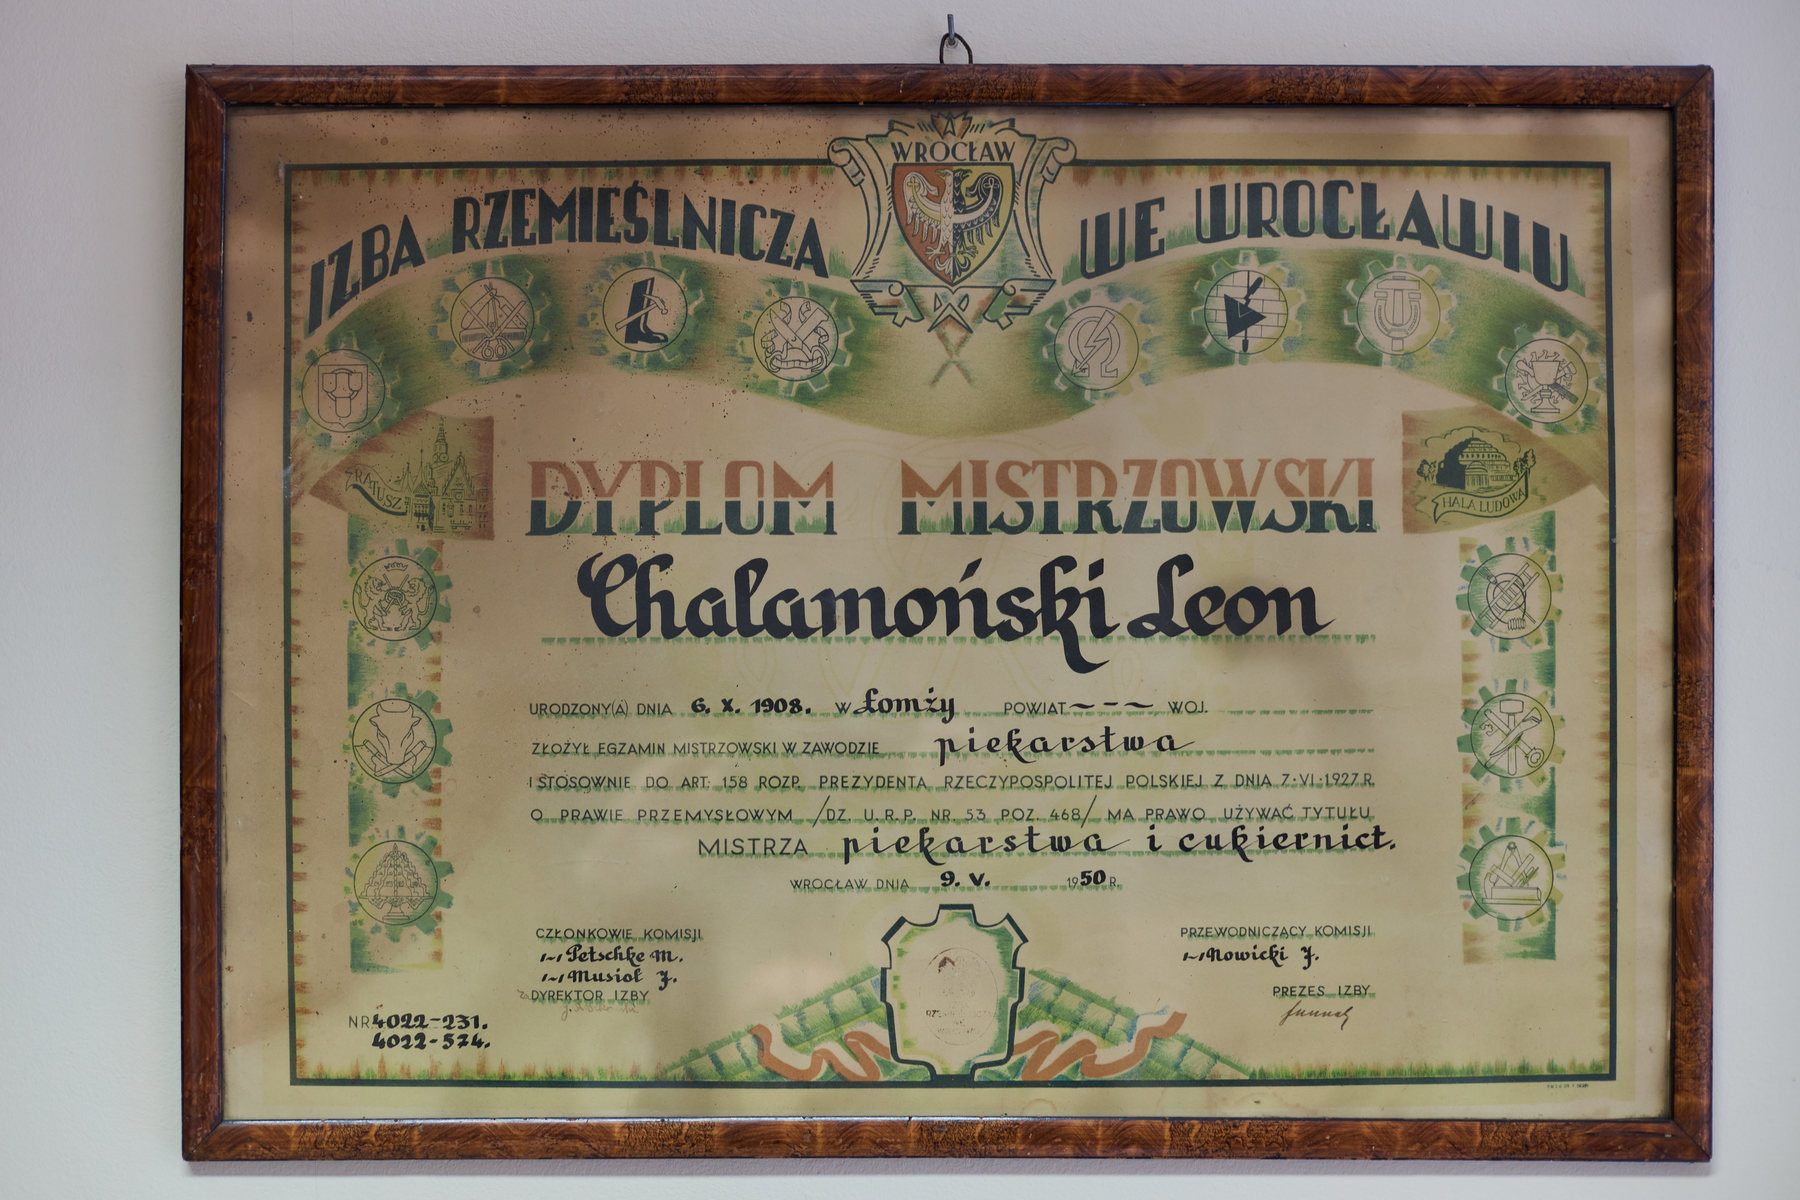 WROCŁAW
IZBA RZEMIEŚLNICZA WE WROCŁAWIU
RATUSZ
HALA LUDOWA
DYPLOM MISTRZOWSKI
Chalamoński Leon
URODZONY(A) DNIA 6. X. 1908. W Łomży POWIAT ~ - ~ WOJ.
ZŁOŻYŁ EGZAMIN MISTRZOWSKI W ZAWODZIE piekarstwa
I STOSOWNIE DO ART. 158 ROZP. PREZYDENTA RZECZYPOSPOLITEJ POLSKIEJ Z DNIA 7·VI·1927 R.
O PRAWIE PRZEMYSŁOWYM /DZ. U. R. P. NR. 53 POZ. 468/ MA PRAWO UŻYWAĆ TYTUŁU
MISTRZA piekarstwa i cukiernict.
WROCŁAW DNIA 9. V. 1950 R.
CZŁONKOWIE KOMISJI
Petschke M.
Musioł J.
za DYREKTOR IZBY
PRZEWODNICZĄCY KOMISJI
Nowicki J.
PREZES IZBY
NR 4022-231.
4022-574.